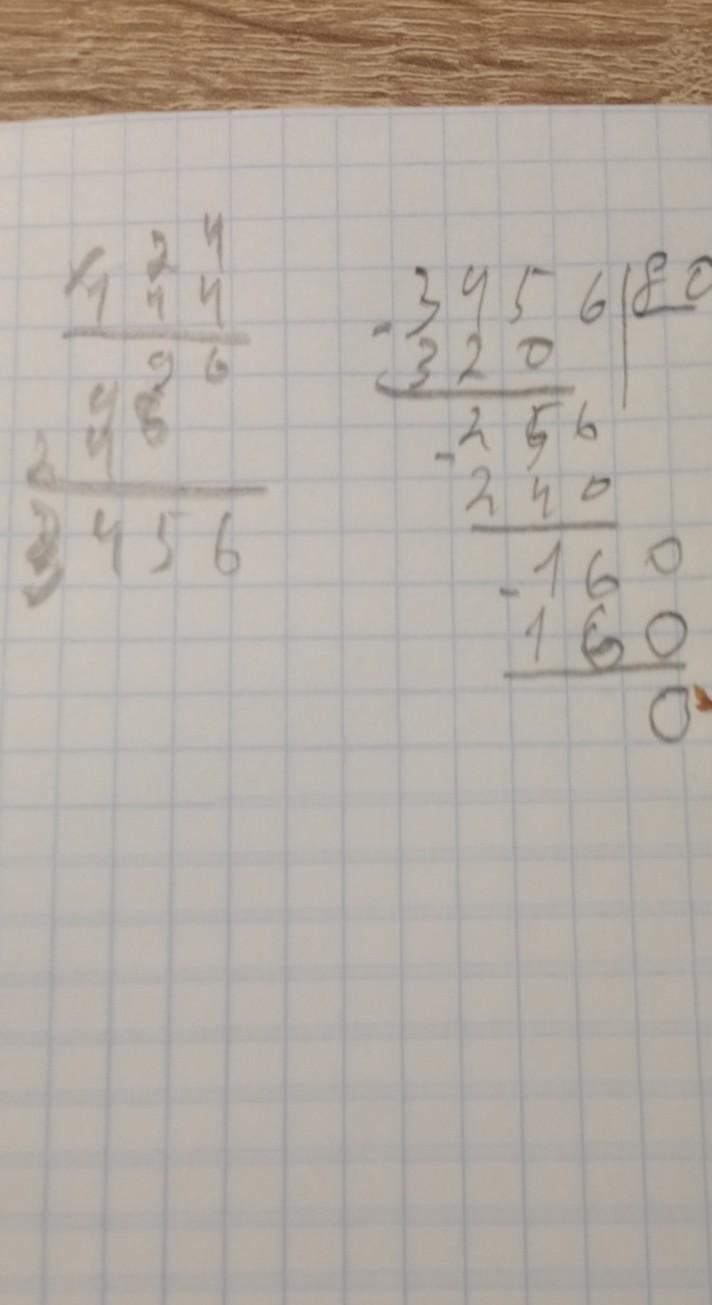 24
144
96
48
24
3456
3456|80
-320
256
-240
160
-160
0